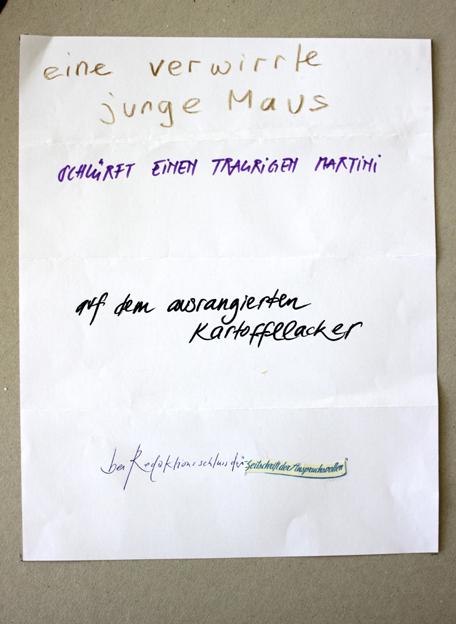 eine verwirrte
junge Maus
SCHLÜRFT EINEN TRAURIGEN MARTINI
auf dem ausrangierten
Kartoffelacker
bei Redaktionsschluss der Zeitschrift der Anspruchsvollen